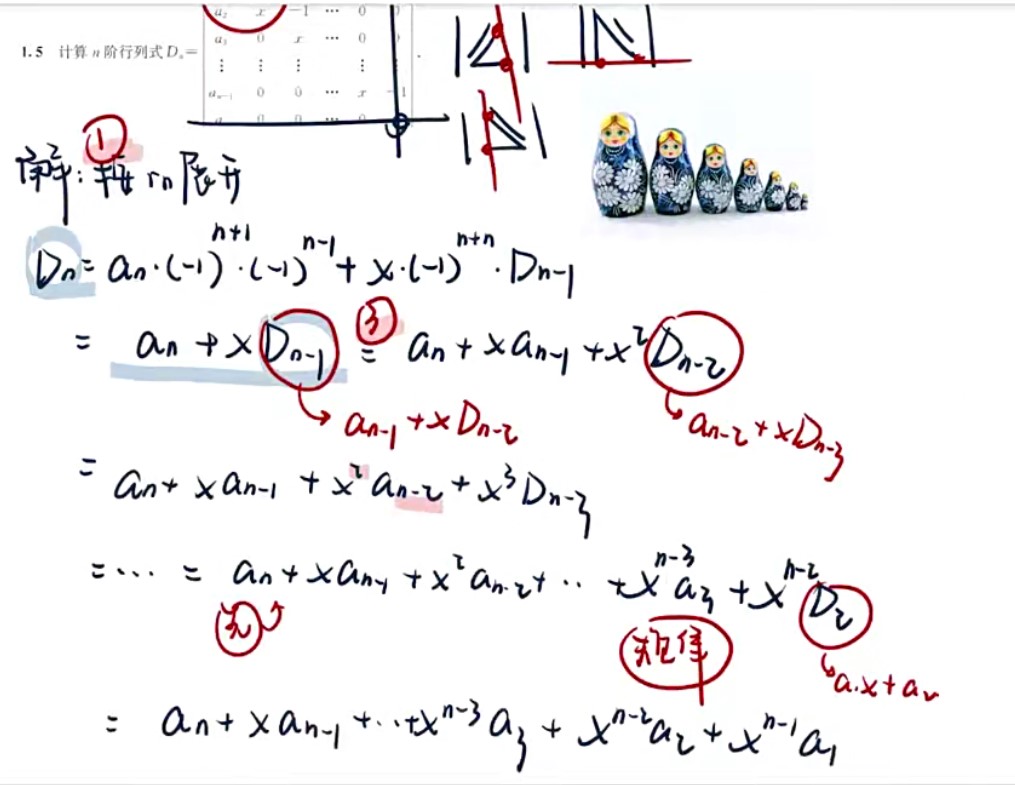 a₂ x -1 ⋯ 0 0
1.5 计算 n 阶行列式 Dₙ=
a₃ 0 x ⋯ 0 0
⋮ ⋮ ⋮ ⋮ ⋮
aₙ₋₁ 0 0 ⋯ x -1
aₙ 0 0 ⋯ 0
①
解: 按 rₙ 展开
Dₙ = aₙ·(-1)ⁿ⁺¹·(-1)ⁿ⁻¹ + x·(-1)ⁿ⁺ⁿ·Dₙ₋₁
= aₙ + xDₙ₋₁ ③ = aₙ + xaₙ₋₁ + x²Dₙ₋₂
aₙ₋₁ + xDₙ₋₂
aₙ₋₂ + xDₙ₋₃
= aₙ + xaₙ₋₁ + x²aₙ₋₂ + x³Dₙ₋₃
= ⋯ = aₙ + xaₙ₋₁ + x²aₙ₋₂ + ⋯ + xⁿ⁻³a₃ + xⁿ⁻²D₂
规律
a₁x + a₂
= aₙ + xaₙ₋₁ + ⋯ + xⁿ⁻³a₃ + xⁿ⁻²a₂ + xⁿ⁻¹a₁